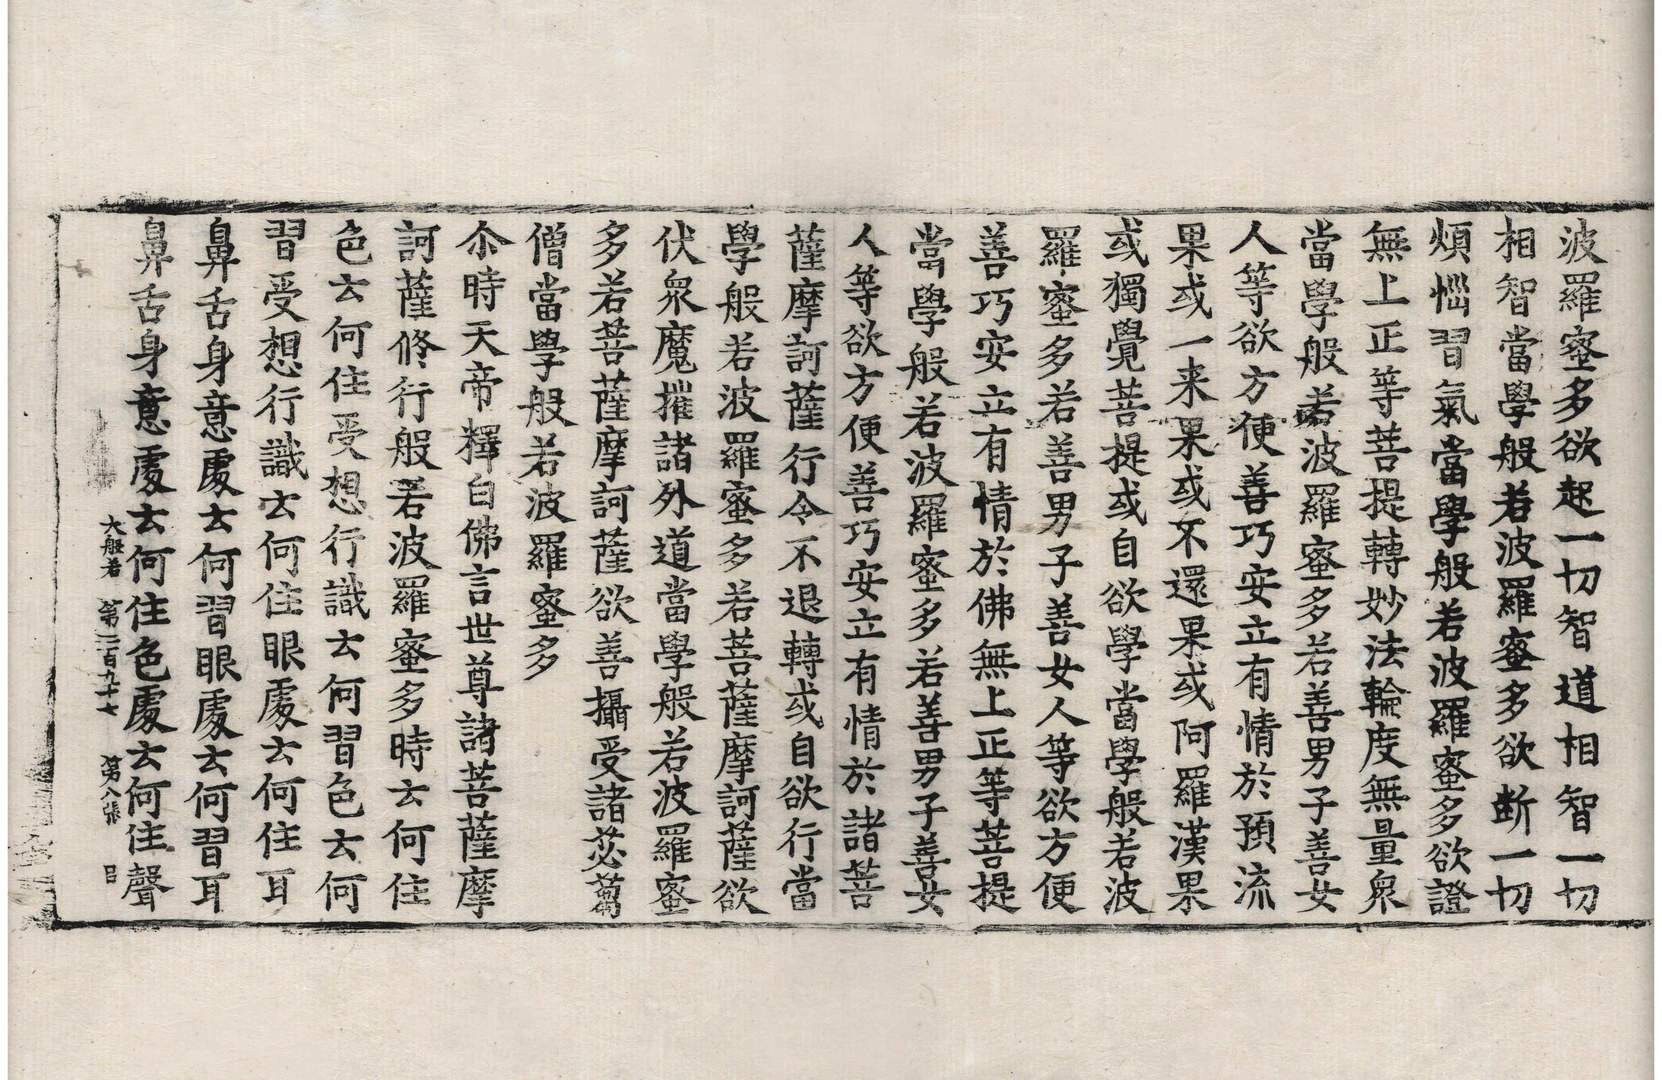 波羅蜜多欲起一切智道相智一切
相智當學般若波羅蜜多欲断一切
煩惱習氣當學般若波羅蜜多欲證
無上正等菩提轉妙法輪度無量衆
當學般若波羅蜜多若善男子善女
人等欲方便善巧安立有情於預流
果或一来果或不還果或阿羅漢果
或獨覺菩提或自欲學當學般若波
羅蜜多若善男子善女人等欲方便
善巧安立有情於佛無上正等菩提
當學般若波羅蜜多若善男子善女
人等欲方便善巧安立有情於諸菩
薩摩訶薩行令不退轉或自欲行當
學般若波羅蜜多若菩薩摩訶薩欲
伏衆魔摧諸外道當學般若波羅蜜
多若菩薩摩訶薩欲善攝受諸苾蒭
僧當學般若波羅蜜多
尒時天帝釋白佛言世尊諸菩薩摩
訶薩修行般若波羅蜜多時云何住
色云何住受想行識云何習色云何
習受想行識云何住眼處云何住耳
鼻舌身意處云何習眼處云何習耳
鼻舌身意處云何住色處云何住聲
大般若 第二百九十七 第八張 吕